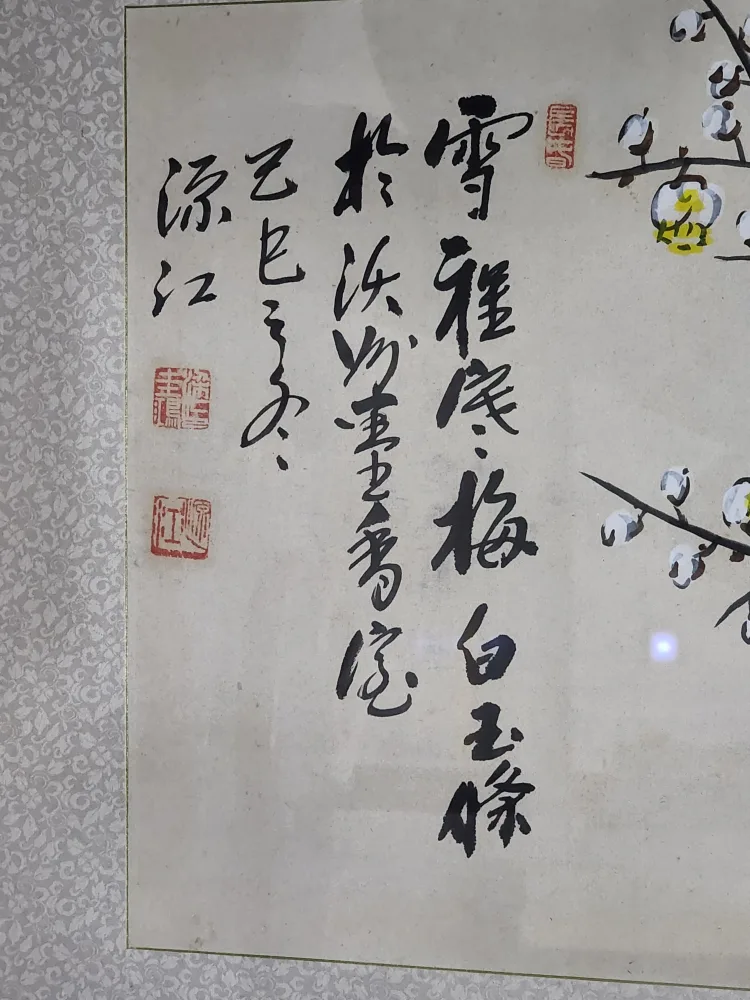 雪裡寒梅白玉條
於沃州畫香室
己巳之冬
源江
源江